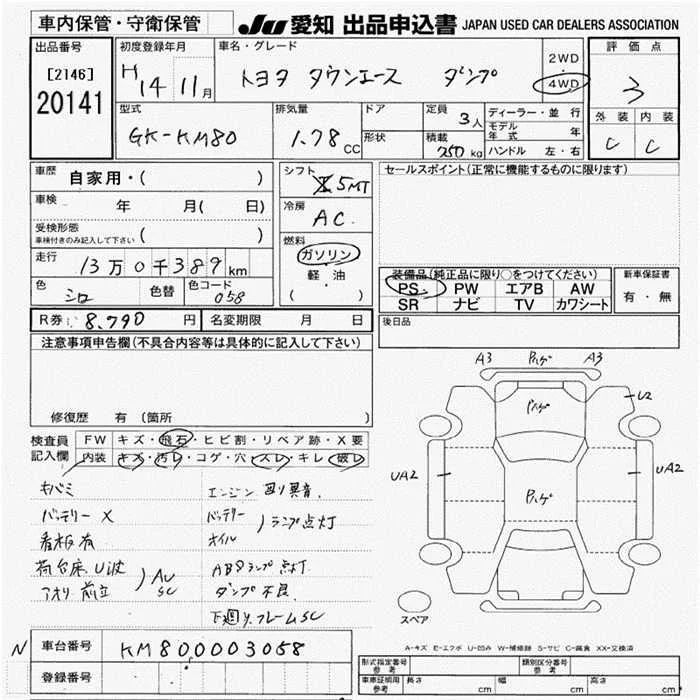 車内保管・守衛保管
JU 愛知 出品申込書 JAPAN USED CAR DEALERS ASSOCIATION
出品番号
[2146]
20141
初度登録年月
H 14年 11月
車名・グレード
トヨタ タウンエース ダンプ
2WD
4WD
評価点
3
外装 内装
C C
型式
GK-KM80
排気量
1.78 CC
ドア
形状
定員
3人
積載
750 kg
ディーラー・並行
モデル年式 年
ハンドル 左・右
車歴
自家用・( )
車検
年 月( 日)
受検形態
車検付きのみ記入して下さい ( )
走行
13万0千389 km
色
シロ
色替
色コード
058
シフト
5MT
冷房
AC
燃料
ガソリン
軽・油
( )
セールスポイント(正常に機能するものに限ります)
装備品(純正品に限り○をつけてください)
PS PW エアB AW
SR ナビ TV カワシート
新車保証書
有・無
R券: 8,790 円
名変期限 月 日
後日品
注意事項申告欄(不具合内容等は具体的に記入して下さい)
修復歴 有 (箇所
検査員記入欄
FW キズ・飛石・ヒビ割・リペア跡・X要
内装 キズ・汚レ・コゲ・穴・スレ・キレ・破レ
キバミ
バッテリー X
看板有
荷台床、U波
アオリ 前立
AU
SC
エンジン 異音.
バッテリー
オイル
ランプ点灯
ABSランプ 点灯
ダンプ不良
下廻リ.フレームSC
A3 ハゲ A3
ハゲ
U2
UA2
UA2
ハゲ
スペア
A-キズ E-エクボ U-凹み W-補修跡 S-サビ C-腐食 XX-交換済
N
車台番号
KM80-0003058
登録番号
形式指定番号
参考
類別区分番号
参考
車庫証明用
参考
長さ cm
幅 cm
高さ cm